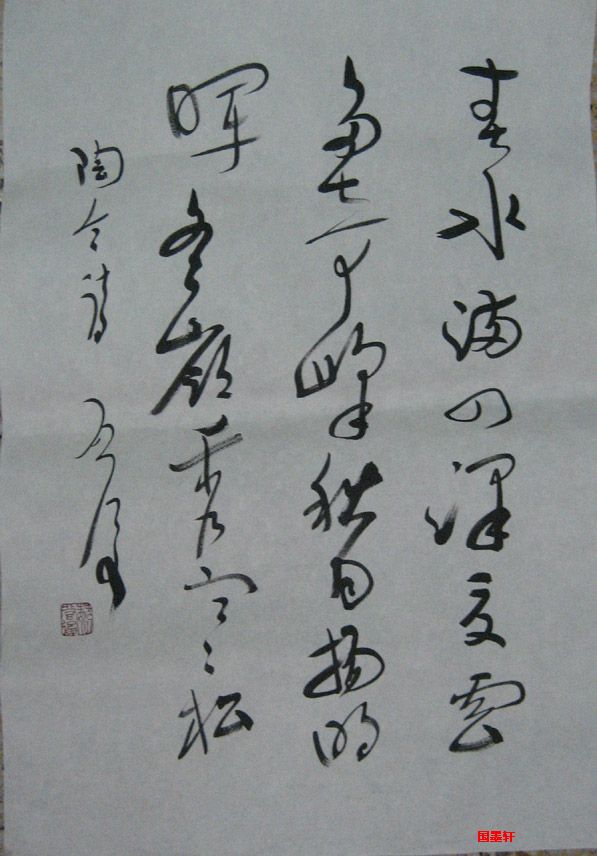 春水满四泽夏雲
多奇峰秋月揚明
晖冬嶺秀寒松
陶令诗
国墨轩